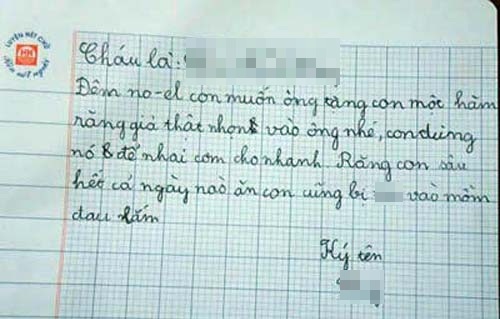 LUYỆN NÉT CHỮ
RÈN NẾT NGƯỜI
HH
Cháu là:
Đêm no-el con muốn ông tặng con một hàm
răng giả thật nhọn vào ông nhé, con dùng
nó để nhai cơm cho nhanh. Răng con sâu
hết cả ngày nào ăn con cũng bị vào mồm
đau lắm
Ký tên